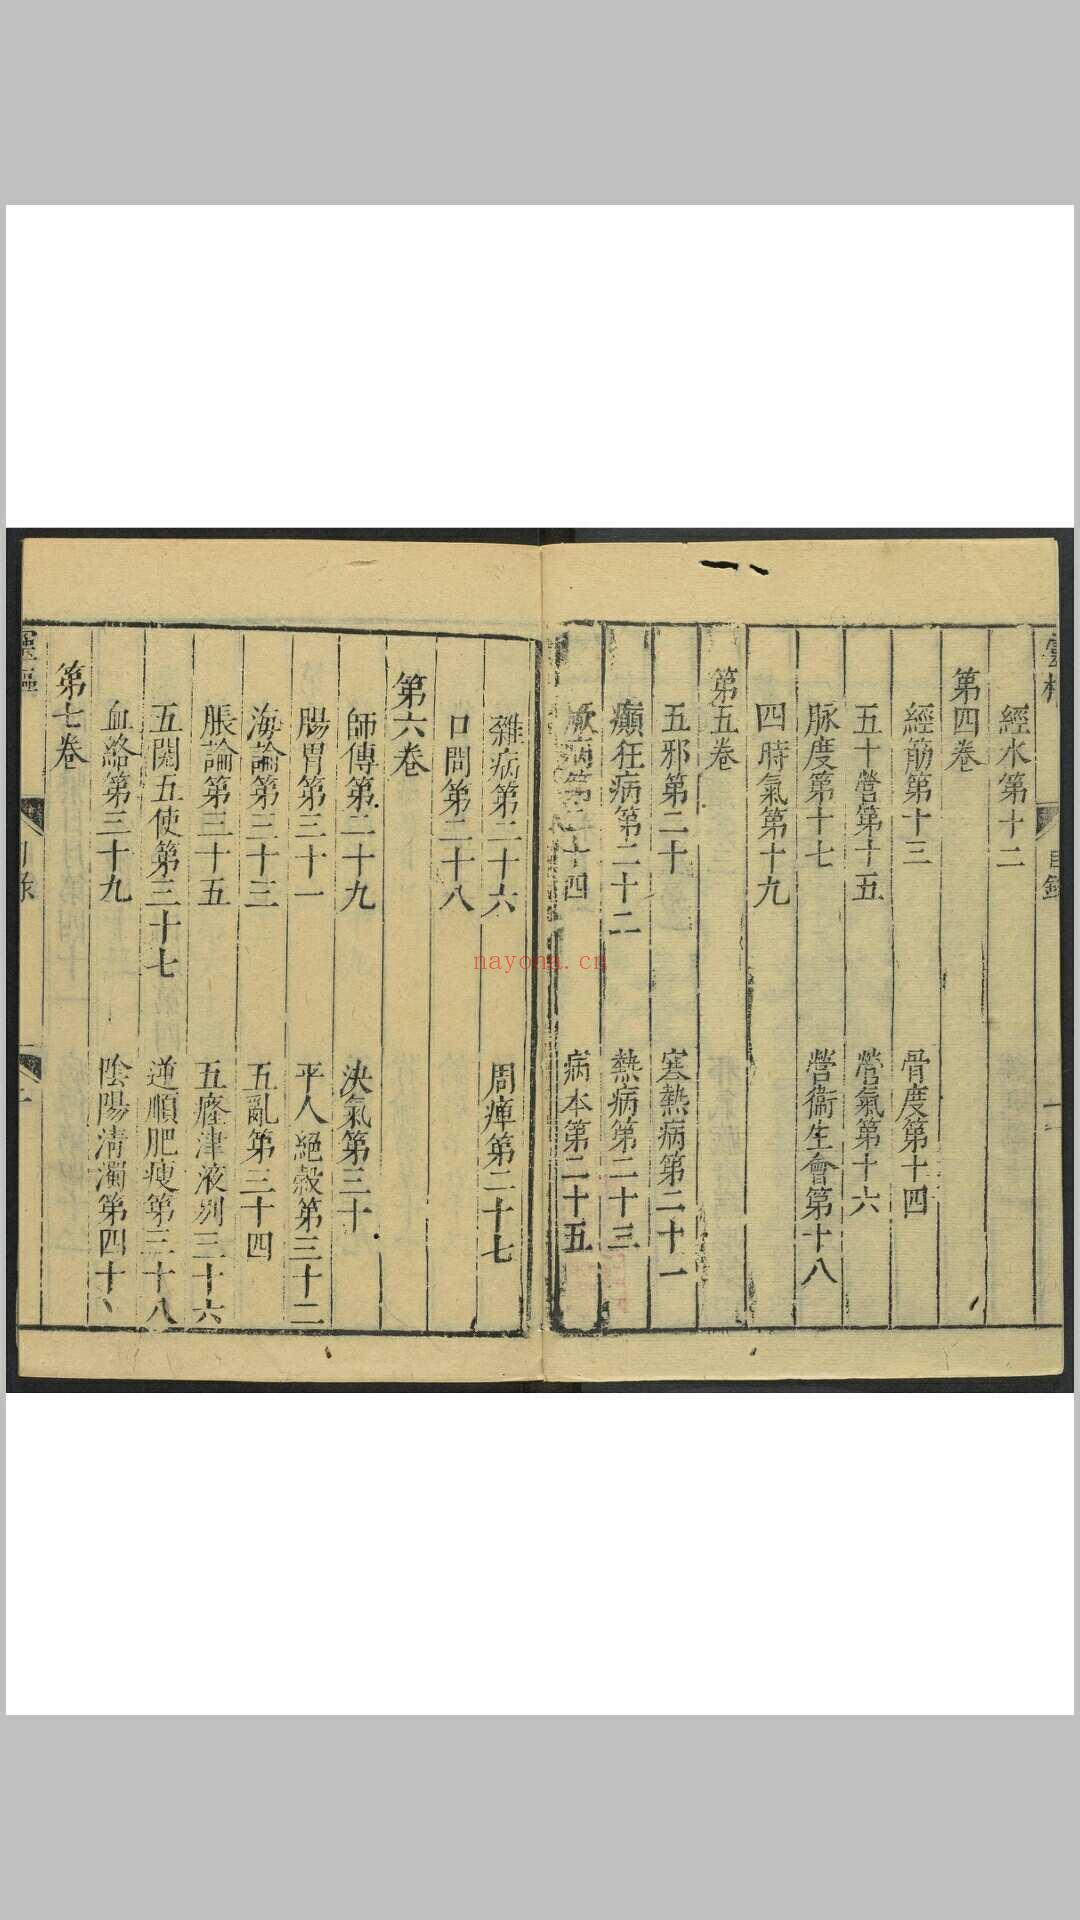 經水第十二
第四卷
經筋第十三 骨度第十四
五十營第十五 營氣第十六
脉度第十七 營衞生會第十八
四時氣第十九
第五卷
五邪第二十 寒熱病第二十一
癲狂病第二十二 熱病第二十三
厥病第二十四 病本第二十五
雜病第二十六 周痺第二十七
口問第二十八
第六卷
師傳第二十九 決氣第三十
腸胃第三十一 平人絕穀第三十二
海論第三十三 五亂第三十四
脹論第三十五 五癃津液别三十六
五閱五使第三十七 逆順肥瘦第三十八
血絡第三十九 陰陽清濁第四十
第七卷
靈樞
nayona.cn